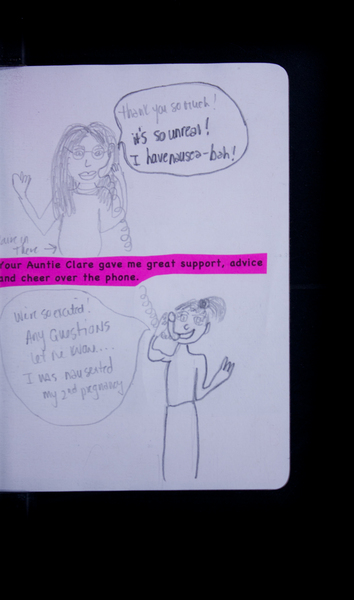 thank you so much!
it's so unreal!
I have nausea-bah!
There →
Your Auntie Clare gave me great support, advice
and cheer over the phone.
We're so excited!
Any Questions
let me know...
I was nauseated
my 2nd pregnancy